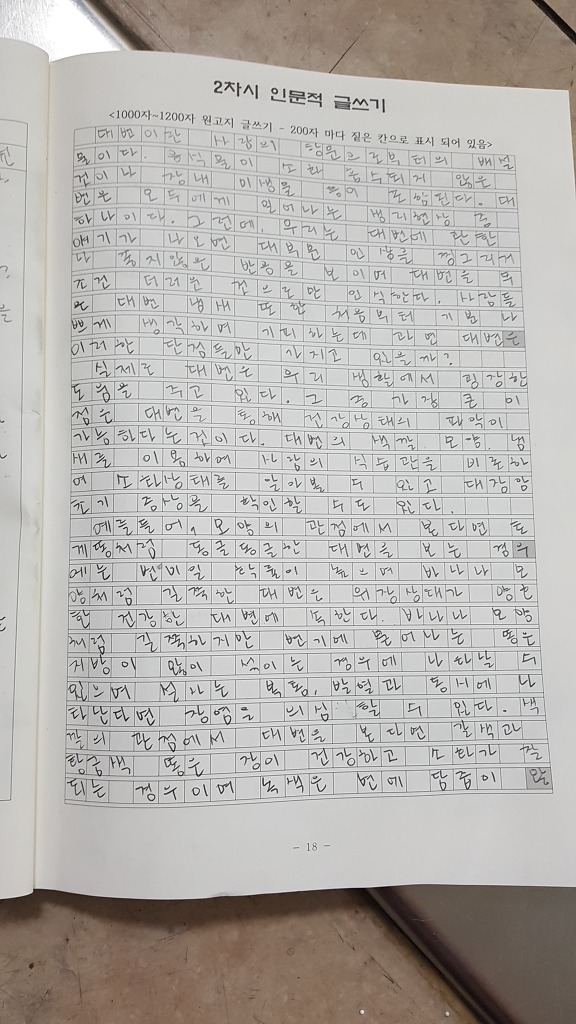 2차시 인문적 글쓰기
<1000자~1200자 원고지 글쓰기 - 200자 마다 짙은 칸으로 표시 되어 있음>
대변이란 사람의 항문으로부터의 배설
물이다. 음식물이 소화 흡수되지 않은
것이나 장내 미생물 등이 포함된다. 대
변은 모두에게 일어나는 생리현상 중
하나이다. 그런데, 우리는 대변에 관한
얘기가 나오면 대부분 인상을 찡그리거
나 좋지않은 반응을 보이며 대변을 무
조건 더러운 것으로만 인식한다. 사람들
은 대변 냄새 또한 처음부터 기분 나
쁘게 생각하며 기피하는데 과연 대변은
이러한 단점들만 가지고 있을까?
실제로 대변은 우리 생활에서 굉장한
도움을 주고 있다. 그 중 가장 큰 이
점은 대변을 통해 건강상태의 파악이
가능하다는 것이다. 대변의 색깔, 모양, 냄
새를 이용하여 사람의 식습관을 비롯하
여 소화상태를 알아볼 수 있고 대장암
초기 증상을 확인할 수도 있다.
예를들어, 모양의 관점에서 본다면 토
끼똥처럼 동글동글한 대변을 보는 경우
에는 변비일 확률이 높으며 바나나 모
양처럼 길쭉한 대변은 위장상태가 양호
한 건강한 대변에 속한다. 바나나 모양
처럼 길쭉하지만 변기에 묻어나는 똥은
지방이 많이 섞이는 경우에 나타날 수
있으며 설사는 복통, 발열과 동시에 나
타난다면 장염을 의심 할 수 있다. 색
깔의 관점에서 대변을 본다면 갈색과
황금색 똥은 장이 건강하고 소화가 잘
되는 경우이며 녹색은 변에 담즙이 많
- 18 -